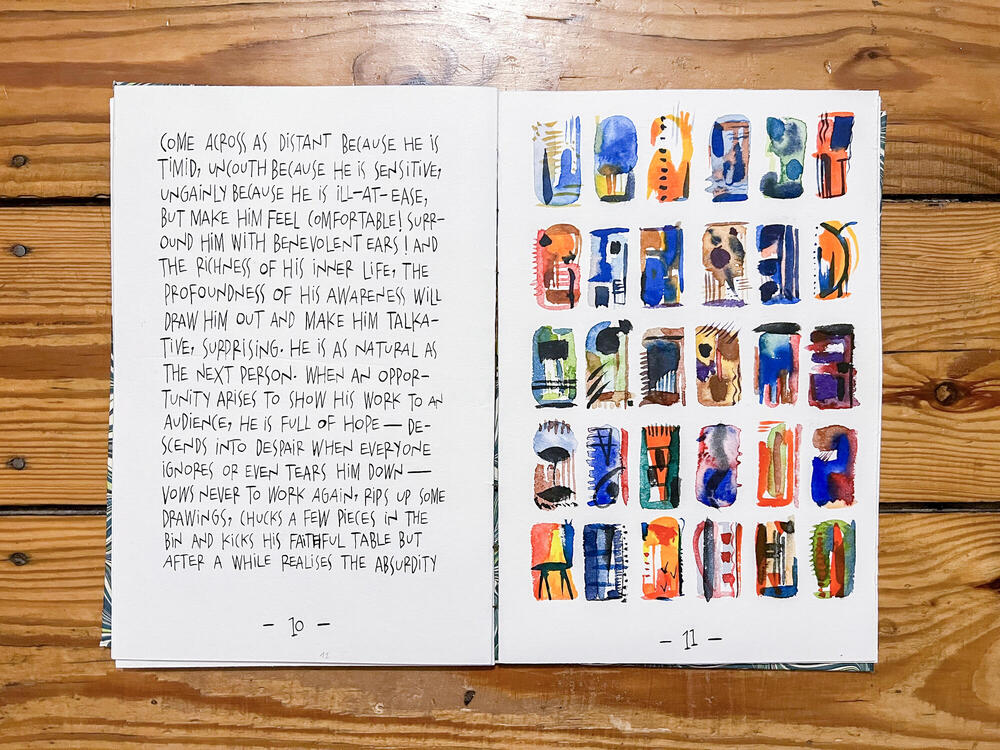 COME ACROSS AS DISTANT BECAUSE HE IS
TIMID, UNCOUTH BECAUSE HE IS SENSITIVE,
UNGAINLY BECAUSE HE IS ILL-AT-EASE,
BUT MAKE HIM FEEL COMFORTABLE! SURR-
OUND HIM WITH BENEVOLENT EARS! AND
THE RICHNESS OF HIS INNER LIFE, THE
PROFOUNDNESS OF HIS AWARENESS WILL
DRAW HIM OUT AND MAKE HIM TALKA-
TIVE, SURPRISING. HE IS AS NATURAL AS
THE NEXT PERSON. WHEN AN OPPOR-
TUNITY ARISES TO SHOW HIS WORK TO AN
AUDIENCE, HE IS FULL OF HOPE — DE-
SCENDS INTO DESPAIR WHEN EVERYONE
IGNORES OR EVEN TEARS HIM DOWN —
VOWS NEVER TO WORK AGAIN, RIPS UP SOME
DRAWINGS, CHUCKS A FEW PIECES IN THE
BIN AND KICKS HIS FAITHFUL TABLE BUT
AFTER A WHILE REALISES THE ABSURDITY
— 10 —
— 11 —